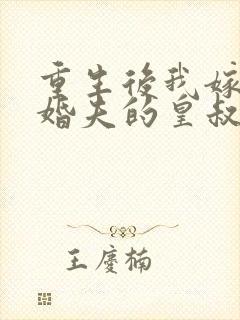 重生後我嫁
婚夫的皇叔
王慶楠